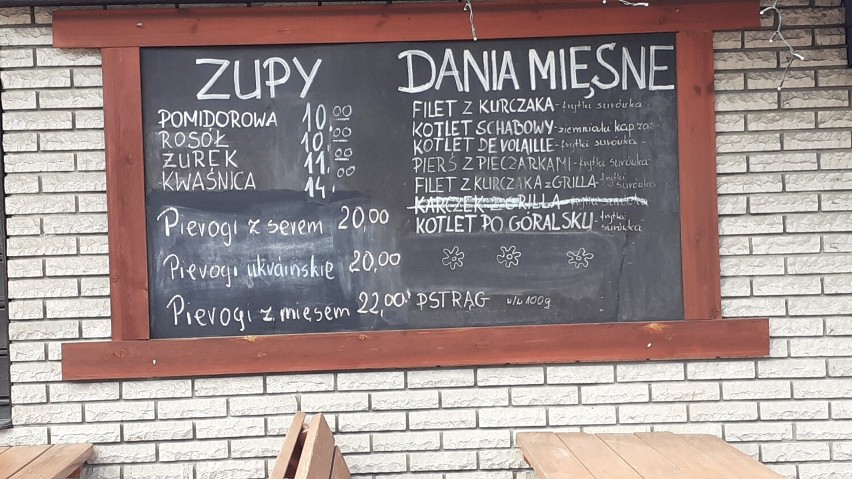 ZUPY
POMIDOROWA 10,00
ROSÓŁ 10,00
ŻUREK 11,00
KWAŚNICA 14,00
Pierogi z serem 20,00
Pierogi ukraińskie 20,00
Pierogi z mięsem 22,00
DANIA MIĘSNE
FILET Z KURCZAKA - frytki surówka
KOTLET SCHABOWY - ziemniaki kap. zas.
KOTLET DE VOLAILLE - frytki surówka
PIERŚ Z PIECZARKAMI - frytki surówka
FILET Z KURCZAKA z GRILLA - frytki surówka
KARCZEK Z GRILLA
KOTLET PO GÓRALSKU - frytki surówka
PSTRĄG w/w 100g